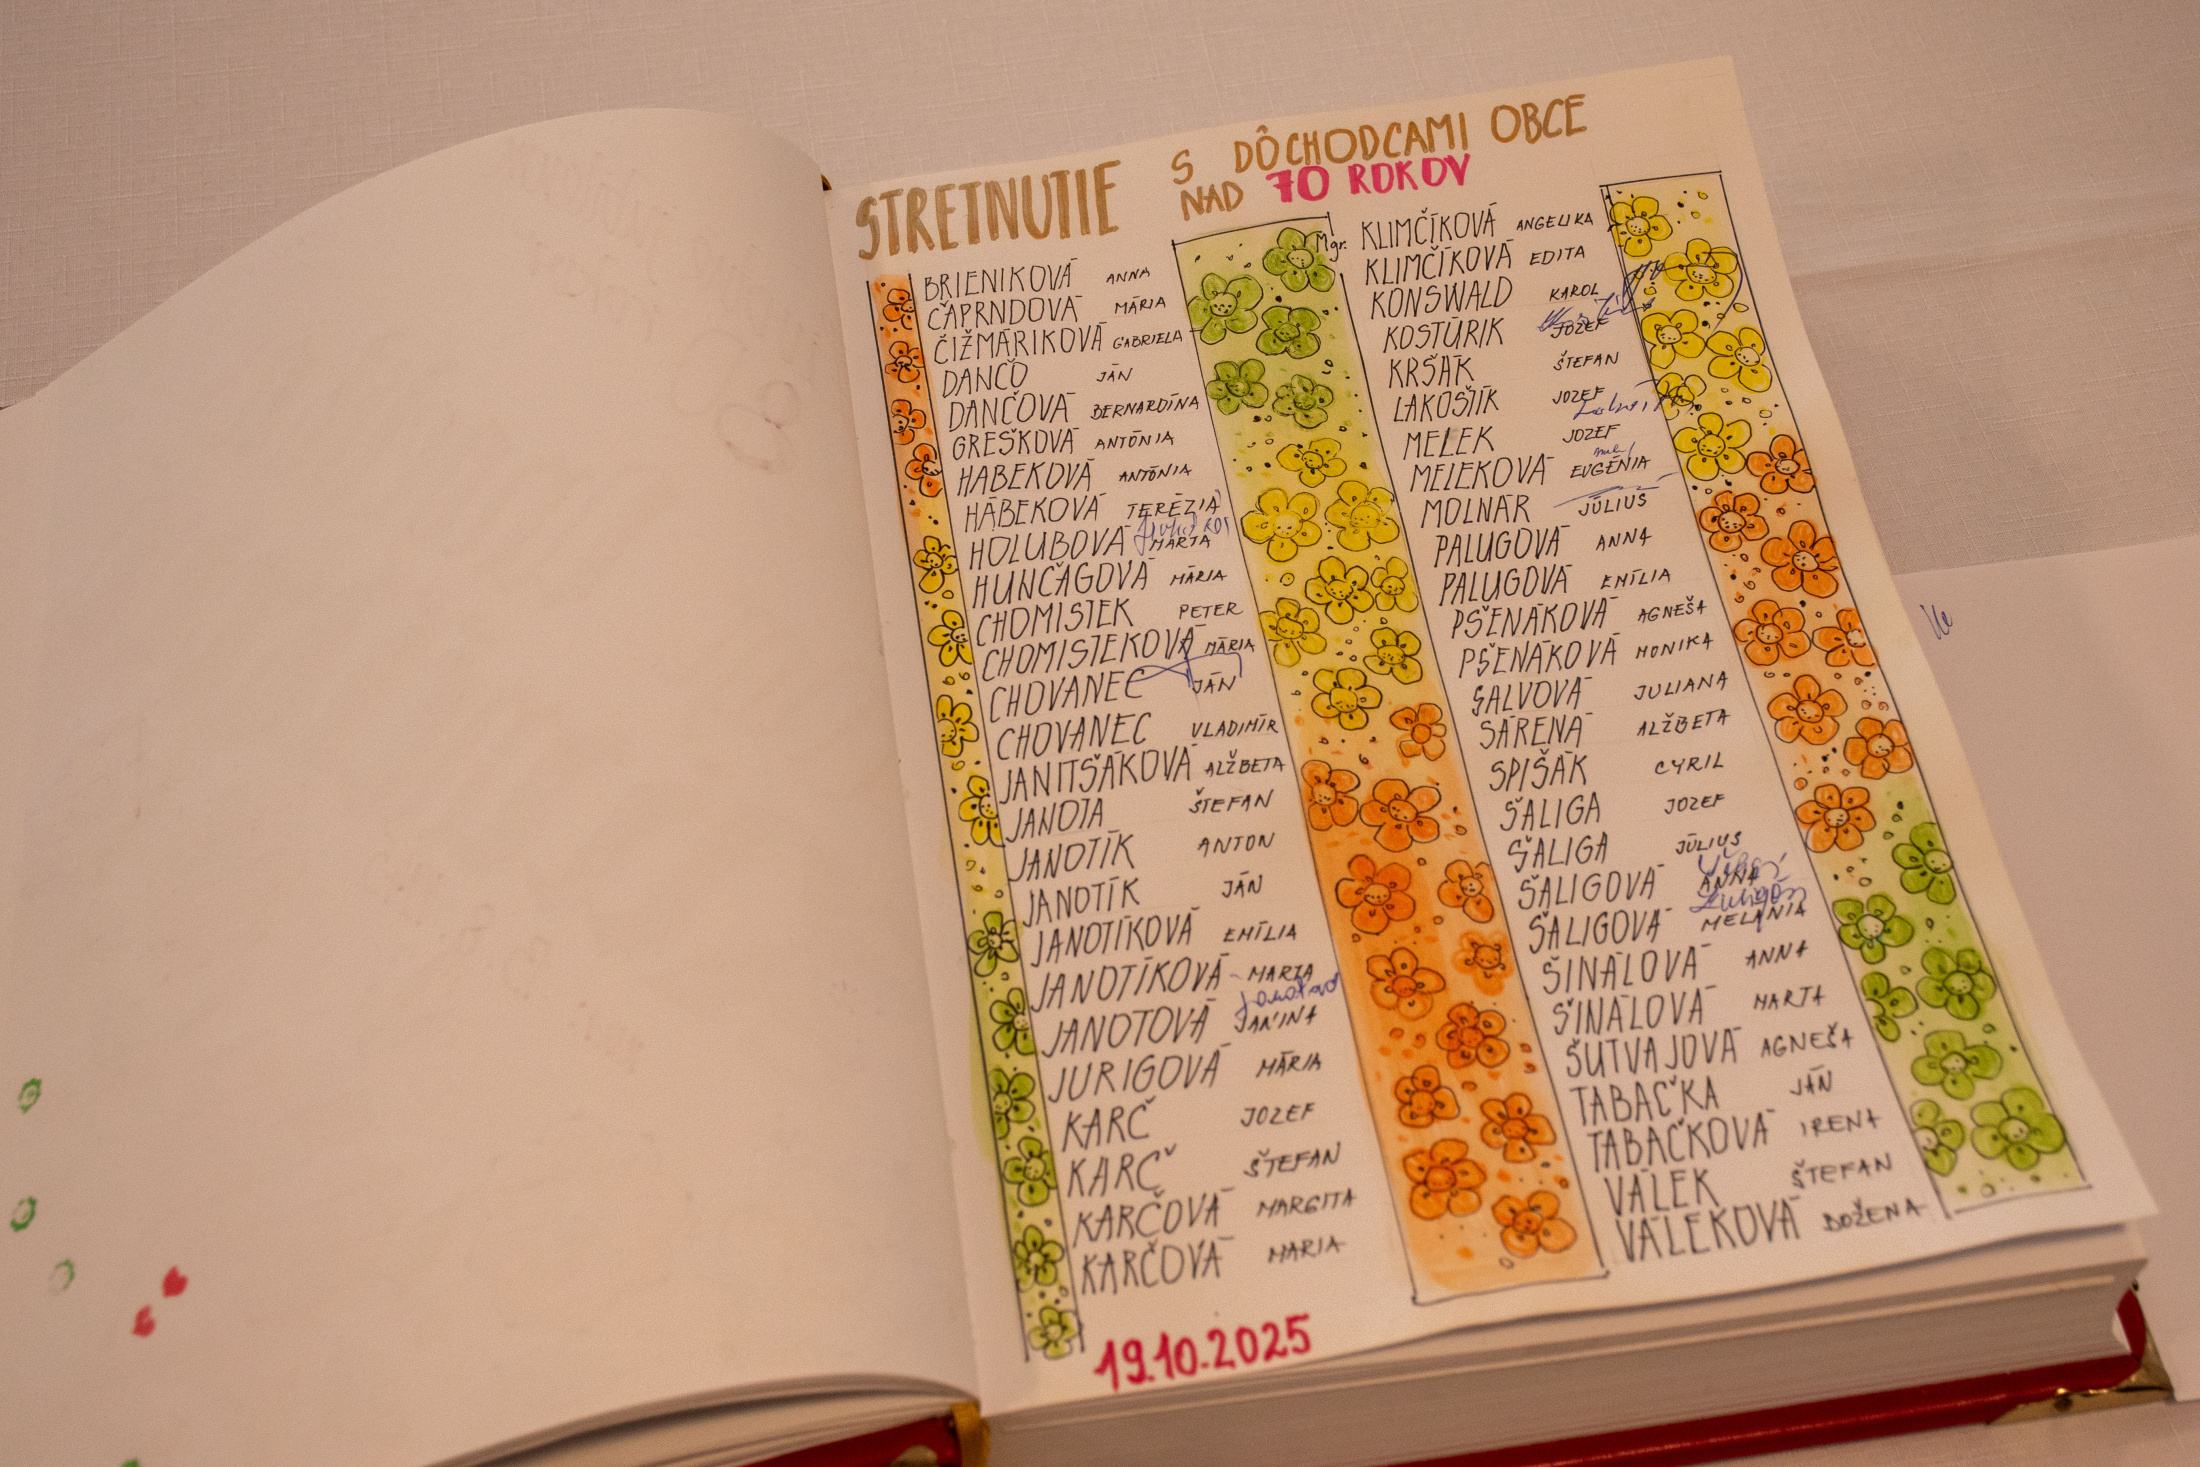 STRETNUTIE S DÔCHODCAMI OBCE
NAD 70 ROKOV
BRIENIKOVÁ ANNA
ČAPRNDOVÁ MÁRIA
ČIŽMÁRIKOVÁ GABRIELA
DANČO JÁN
DANČOVÁ BERNARDÍNA
GREŠKOVÁ ANTÓNIA
HABEKOVÁ ANTÓNIA
HÁBEKOVÁ TERÉZIA
HOLUBOVÁ MARTA
HUNČAGOVÁ MÁRIA
CHOMISTEK PETER
CHOMISTEKOVÁ MÁRIA
CHOVANEC JÁN
CHOVANEC VLADIMÍR
JANITŠÁKOVÁ ALŽBETA
JANOTA ŠTEFAN
JANOTÍK ANTON
JANOTÍK JÁN
JANOTÍKOVÁ EMÍLIA
JANOTÍKOVÁ MARTA
JANOTOVÁ JANINA
JURIGOVÁ MÁRIA
KARČ JOZEF
KARČ ŠTEFAN
KARČOVÁ MARGITA
KARČOVÁ MARIA
Mgr. KLIMČÍKOVÁ ANGELIKA
KLIMČÍKOVÁ EDITA
KONSWALD KAROL
KOSTÚRIK JOZEF
KRŠÁK ŠTEFAN
LAKOŠTÍK JOZEF
MELEK JOZEF
MELEKOVÁ EUGÉNIA
MOLNÁR JÚLIUS
PALUGOVÁ ANNA
PALUGOVÁ EMÍLIA
PŠENÁKOVÁ AGNEŠA
PŠENÁKOVÁ MONIKA
SALVOVÁ JULIANA
SÁRENÁ ALŽBETA
SPIŠÁK CYRIL
ŠALIGA JOZEF
ŠALIGA JÚLIUS
ŠALIGOVÁ ANNA
ŠALIGOVÁ MELÁNIA
ŠINÁLOVÁ ANNA
ŠINÁLOVÁ MARTA
ŠUTVAJOVÁ AGNEŠA
TABAČKA JÁN
TABAČKOVÁ IRENA
VÁLEK ŠTEFAN
VÁLEKOVÁ BOŽENA
19.10.2025